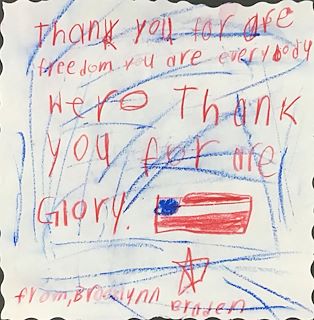 Thank you for are
freedom you are everybody
Hero Thank
you for are
Glory.
from, Brooklynn
Braden